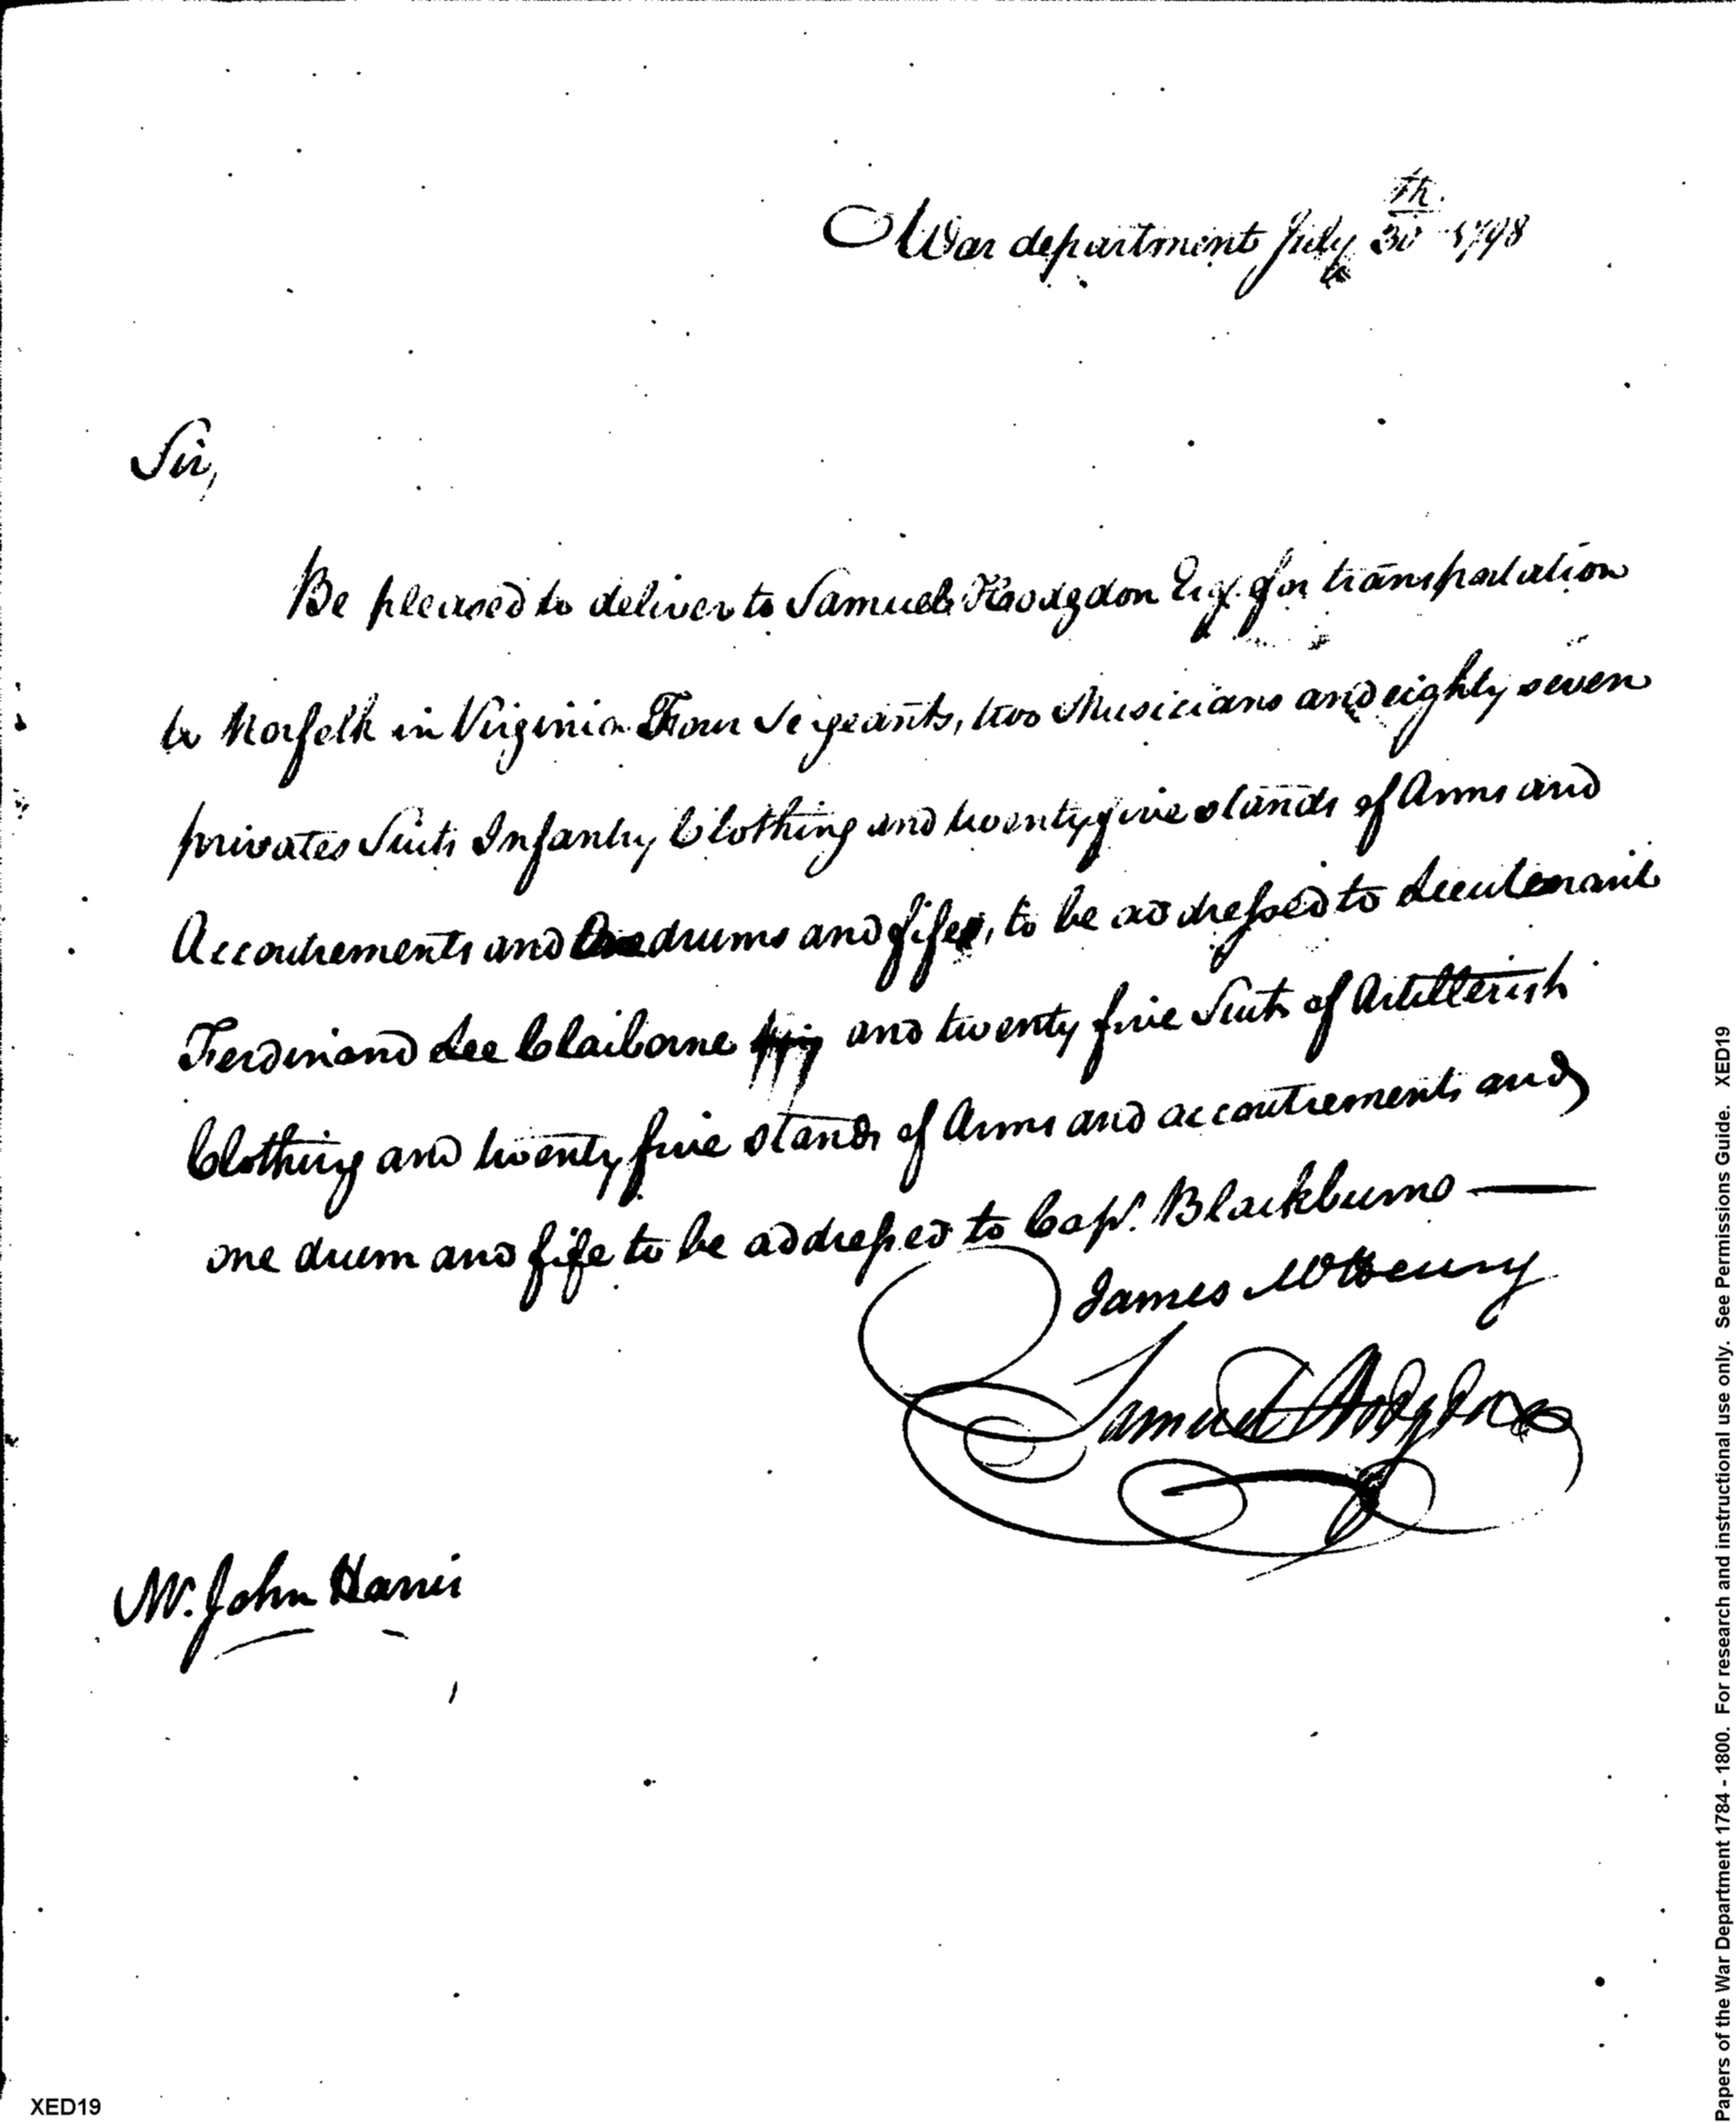 War department July 30th 1798
Sir,
Be pleased to deliver to Samuel Hodgdon Esq. for transportation
to Norfolk in Virginia Four Sergeants, two Musicians and eighty seven
privates Suits Infantry Clothing and twenty five stands of Arms and
Accoutrements and drums and fifes, to be addressed to Lieutenant
Ferdinand Lee Claiborne and twenty five Suits of Artillerist
Clothing and twenty five stands of Arms and accoutrements and
one drum and fife to be addressed to Capt. Blackburne
James McHenry
Samuel Hodgdon
Mr. John Harris
XED19
Papers of the War Department 1784 - 1800. For research and instructional use only. See Permissions Guide. XED19